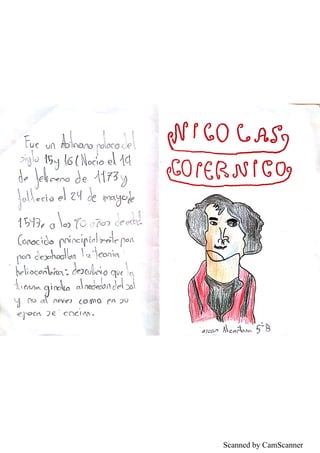 Fue un Astronomo polaco del
siglo 15 y 16 (Nacio el 19
de febrero de 1473 y
fallecio el 24 de mayo de
1543, a los 70 años de edad.
Conocido principalmente por
por desarrollar la teoria
heliocentrica: descubrio que la
tierra giraba alrededor del sol
y no al reves como en su
epoca se creia.
NICOLAS
COPERNICO
5°B
Scanned by CamScanner